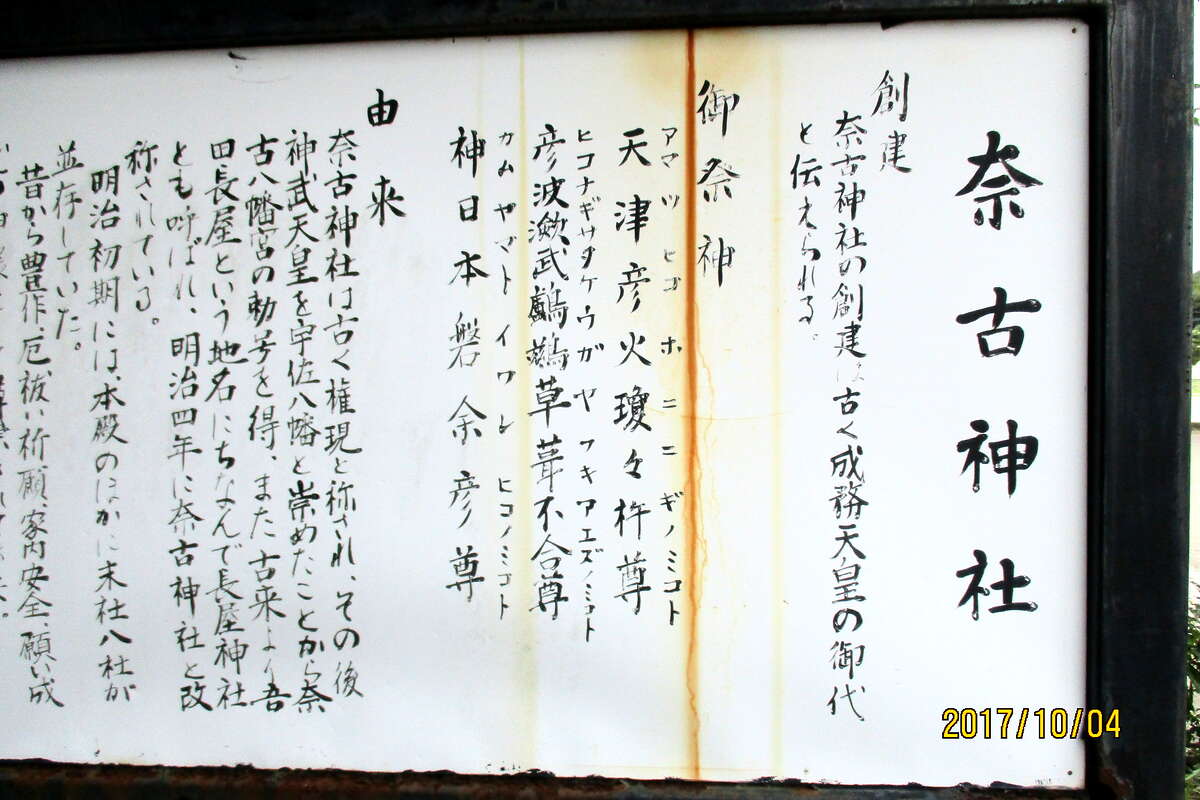 奈古神社
創建
奈古神社の創建は古く成務天皇の御代
と伝えられる。
御祭神
アマツヒコホニニギノミコト
天津彦火瓊々杵尊
ヒコナギサタケウガヤフキアエズノミコト
彦波瀲武鸕鶿草葺不合尊
カムヤマトイワレヒコノミコト
神日本磐余彦尊
由来
奈古神社は古く権現と称され、その後
神武天皇を宇佐八幡と崇めたことから奈
古八幡宮の勅号を得、また古来より吾
田長屋という地名にちなんで長屋神社
とも呼ばれ、明治四年に奈古神社と改
称されている。
明治初期には、本殿のほかに末社八社が
並存していた。
昔から豊作、厄祓い祈願、家内安全、願い成
2017/10/04